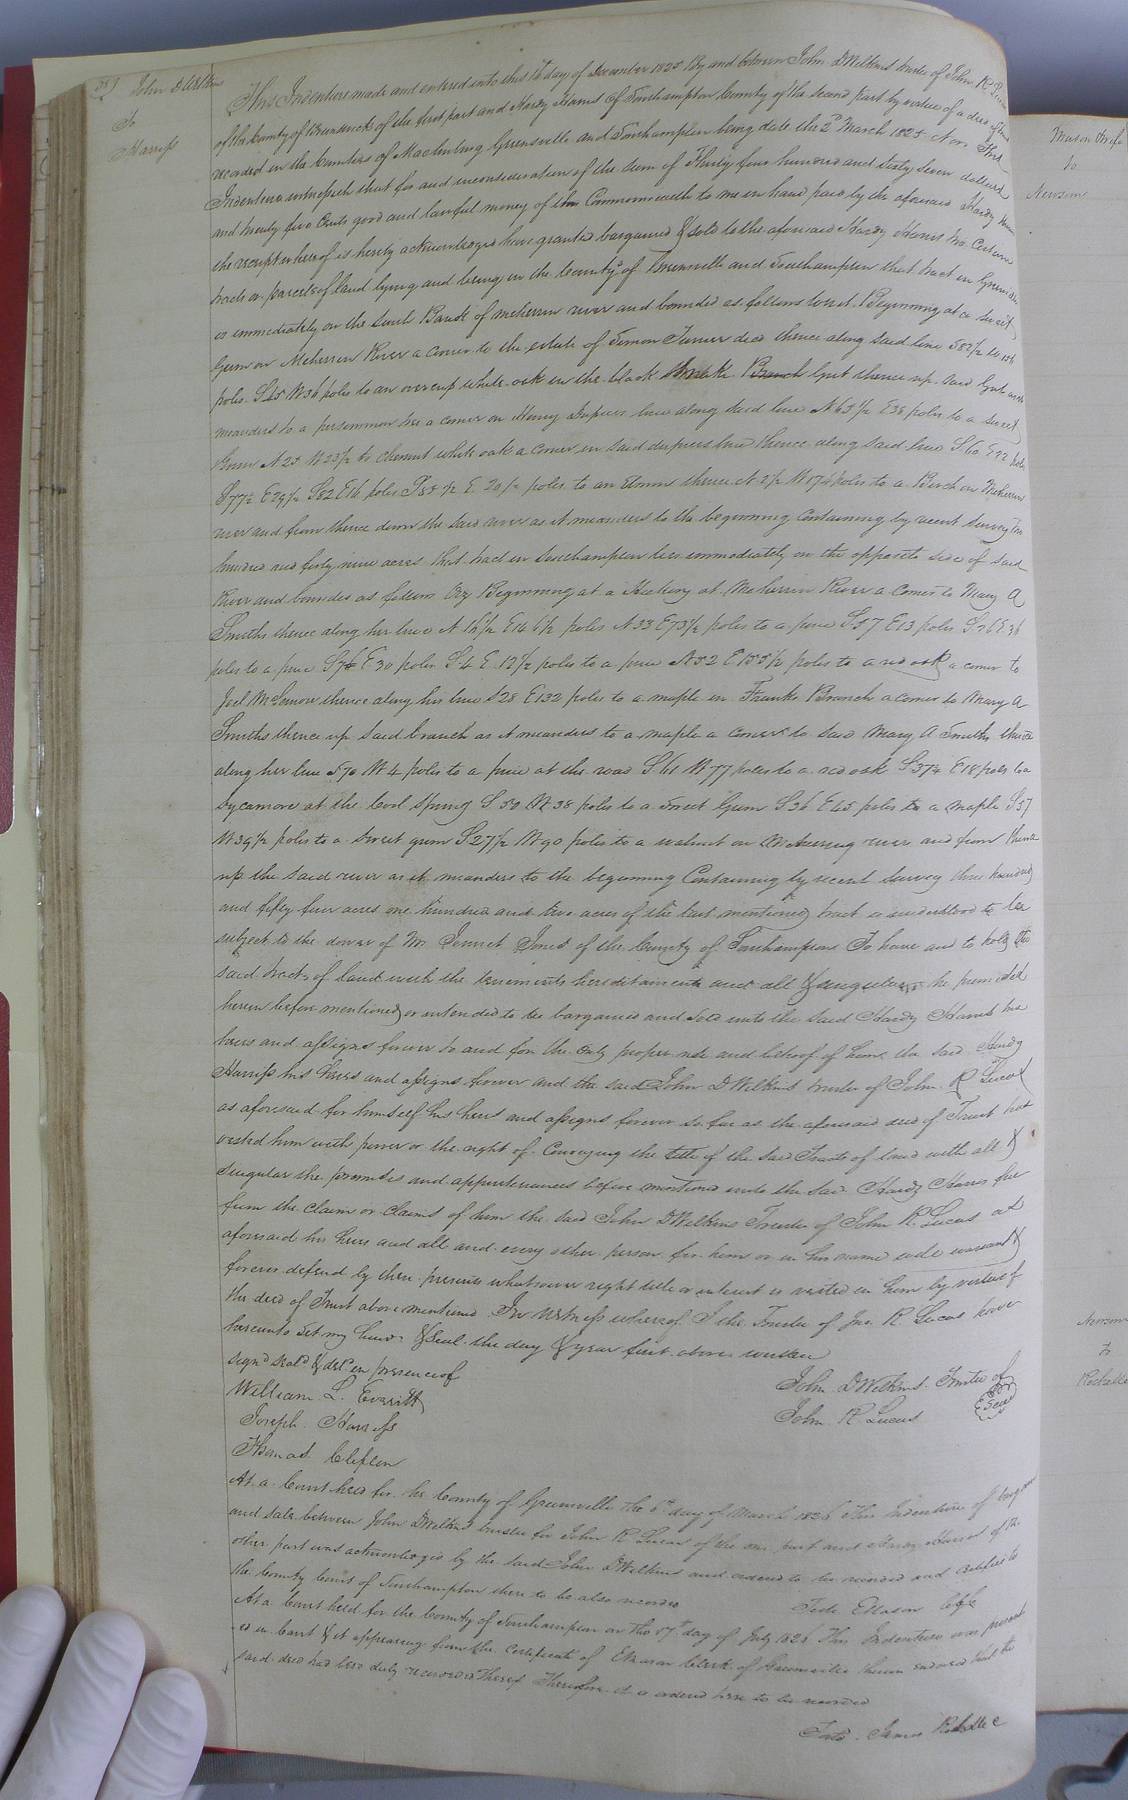 381 John D Wilkins
To
Harriss
This Indenture made and entered into this day of December 1825 By and between John D Wilkins trustee of John R Lucas
of the County of Brunswick of the first part and Hardy Harris of Southampton County of the second part by virtue of a deed of trust
recorded in the Counties of Greensville and Southampton being date the 2d March 1825 Now This
Indenture witnesseth that for and inconsideration of the sum of Thirty four hundred and sixty seven dollars
and twenty five Cents good and lawful money of the Commonwealth to me in hand paid by the aforesaid Hardy Harris
the receipt whereof is hereby acknowledged have granted bargained & sold to the aforesaid Hardy Harris two certain
tracts or parcels of land lying and being in the Countys of Greensville and Southampton that tract in Greensville
is immediately on the South Bank of meherrin river and bounded as follows to wit. Beginning at a sweet
Gum on Meherrin River a corner to the estate of Simon Turner decd thence along said line S 82 1/2 W 156
poles S 45 W 36 poles to an overcup white oak in the black Branch Gut thence up said Gut as it
meanders to a persommon tree a corner on Henry line along said line N 65 1/2 E 38 poles to a sweet
Gum N 25 W 23 1/2 to chesnut white oak a corner in said line thence along said line S 60 E 22 poles
S 77 1/2 E 29 1/2 S 82 E 16 poles S 55 1/2 E 20 1/2 poles to an Elmm thence N 2 1/2 W 174 poles to a Birch on Meherrin
river and from thence down the said river as it meanders to the beginning Containing by recent Survey two
hundred and forty nine acres that tract in Southampton lies immediately on the opposite side of said
River and bounded as follows Viz Beginning at a Hickory at Meherrin River a Corner to Mary A
Smiths thence along her line N 16 1/2 E 146 1/2 poles N 33 E 73 1/2 poles to a pine S 57 E 13 poles S 26 E 36
poles to a pine S 76 E 30 poles S 4 E 12 1/2 poles to a pine N 52 E 155 1/2 poles to a red oak a corner to
Joel McLemore thence along his line S 28 E 132 poles to a maple in Franks Branch a corner to Mary A
Smiths thence up said branch as it meanders to a maple a corner to said Mary A Smiths thence
along her line S 70 W 4 poles to a pine at the road S 61 W 77 poles to a red oak S 37 1/2 E 18 poles to a
Sycamore at the Cool Spring S 50 W 38 poles to a sweet Gum S 36 E 45 poles to a maple S 57
W 39 1/2 poles to a sweet gum S 27 1/2 W 90 poles to a walnut on river and from thence
up the said river as it meanders to the beginning Containing by recent Survey three hundred
and fifty four acres one hundred and two acres of the last mentioned tract is understood to be
subject to the dower of Jones of the County of Southampton To have and to hold the
said tracts of land with the tenements hereditaments and all & singular the premises
herein before mentioned or intended to be bargained and sold unto the said Hardy Harris his
heirs and assigns forever to and for the only proper use and behoof of him the said Hardy
Harriss his heirs and assigns forever and the said John D Wilkins trustee of John R Lucas
as aforesaid for himself his heirs and assigns forever so far as the aforesaid deed of Trust has
vested him with power or the right of Conveying the title of the said Tracts of land with all &
singular the premises and appurtenances before mentioned unto the said Hardy Harris free
from the claim or claims of him the said John D Wilkins Trustee of John R Lucas as
aforesaid his heirs and all and every other person for him or in his name will warrant &
forever defend by these presents whatsoever right title or interest is vested in him by virtue of
the deed of Trust above mentioned In Witness whereof I the Trustee of Jno. R Lucas have
hereunto set my hand & seal the day & year first above written
sign'd seal'd & del'd in presence of
William L. Everitt
Joseph Harriss
Thomas Clifton
John D Wilkins Trustee of
John R Lucas
Seal
At a Court held for the County of Greensville the 6th day of March 1826 This Indenture of bargain
and sale between John D Wilkins trustee for John R Lucas of the one part and Hardy Harris of the
other part was acknowledged by the said John D Wilkins and ordered to be recorded and certified to
the County Court of Southampton there to be also recorded
Teste E Mason
At a Court held for the County of Southampton on the 17th day of July 1826 This Indenture was present
ed in Court & it appearing from the certificate of E Mason Clerk of Greensville thereon endorsed that the
said deed had been duly recorded Therefore it is ordered here to be recorded
Teste James Rochelle
Mason
to
Newsom
Newsom
To
Rochelle